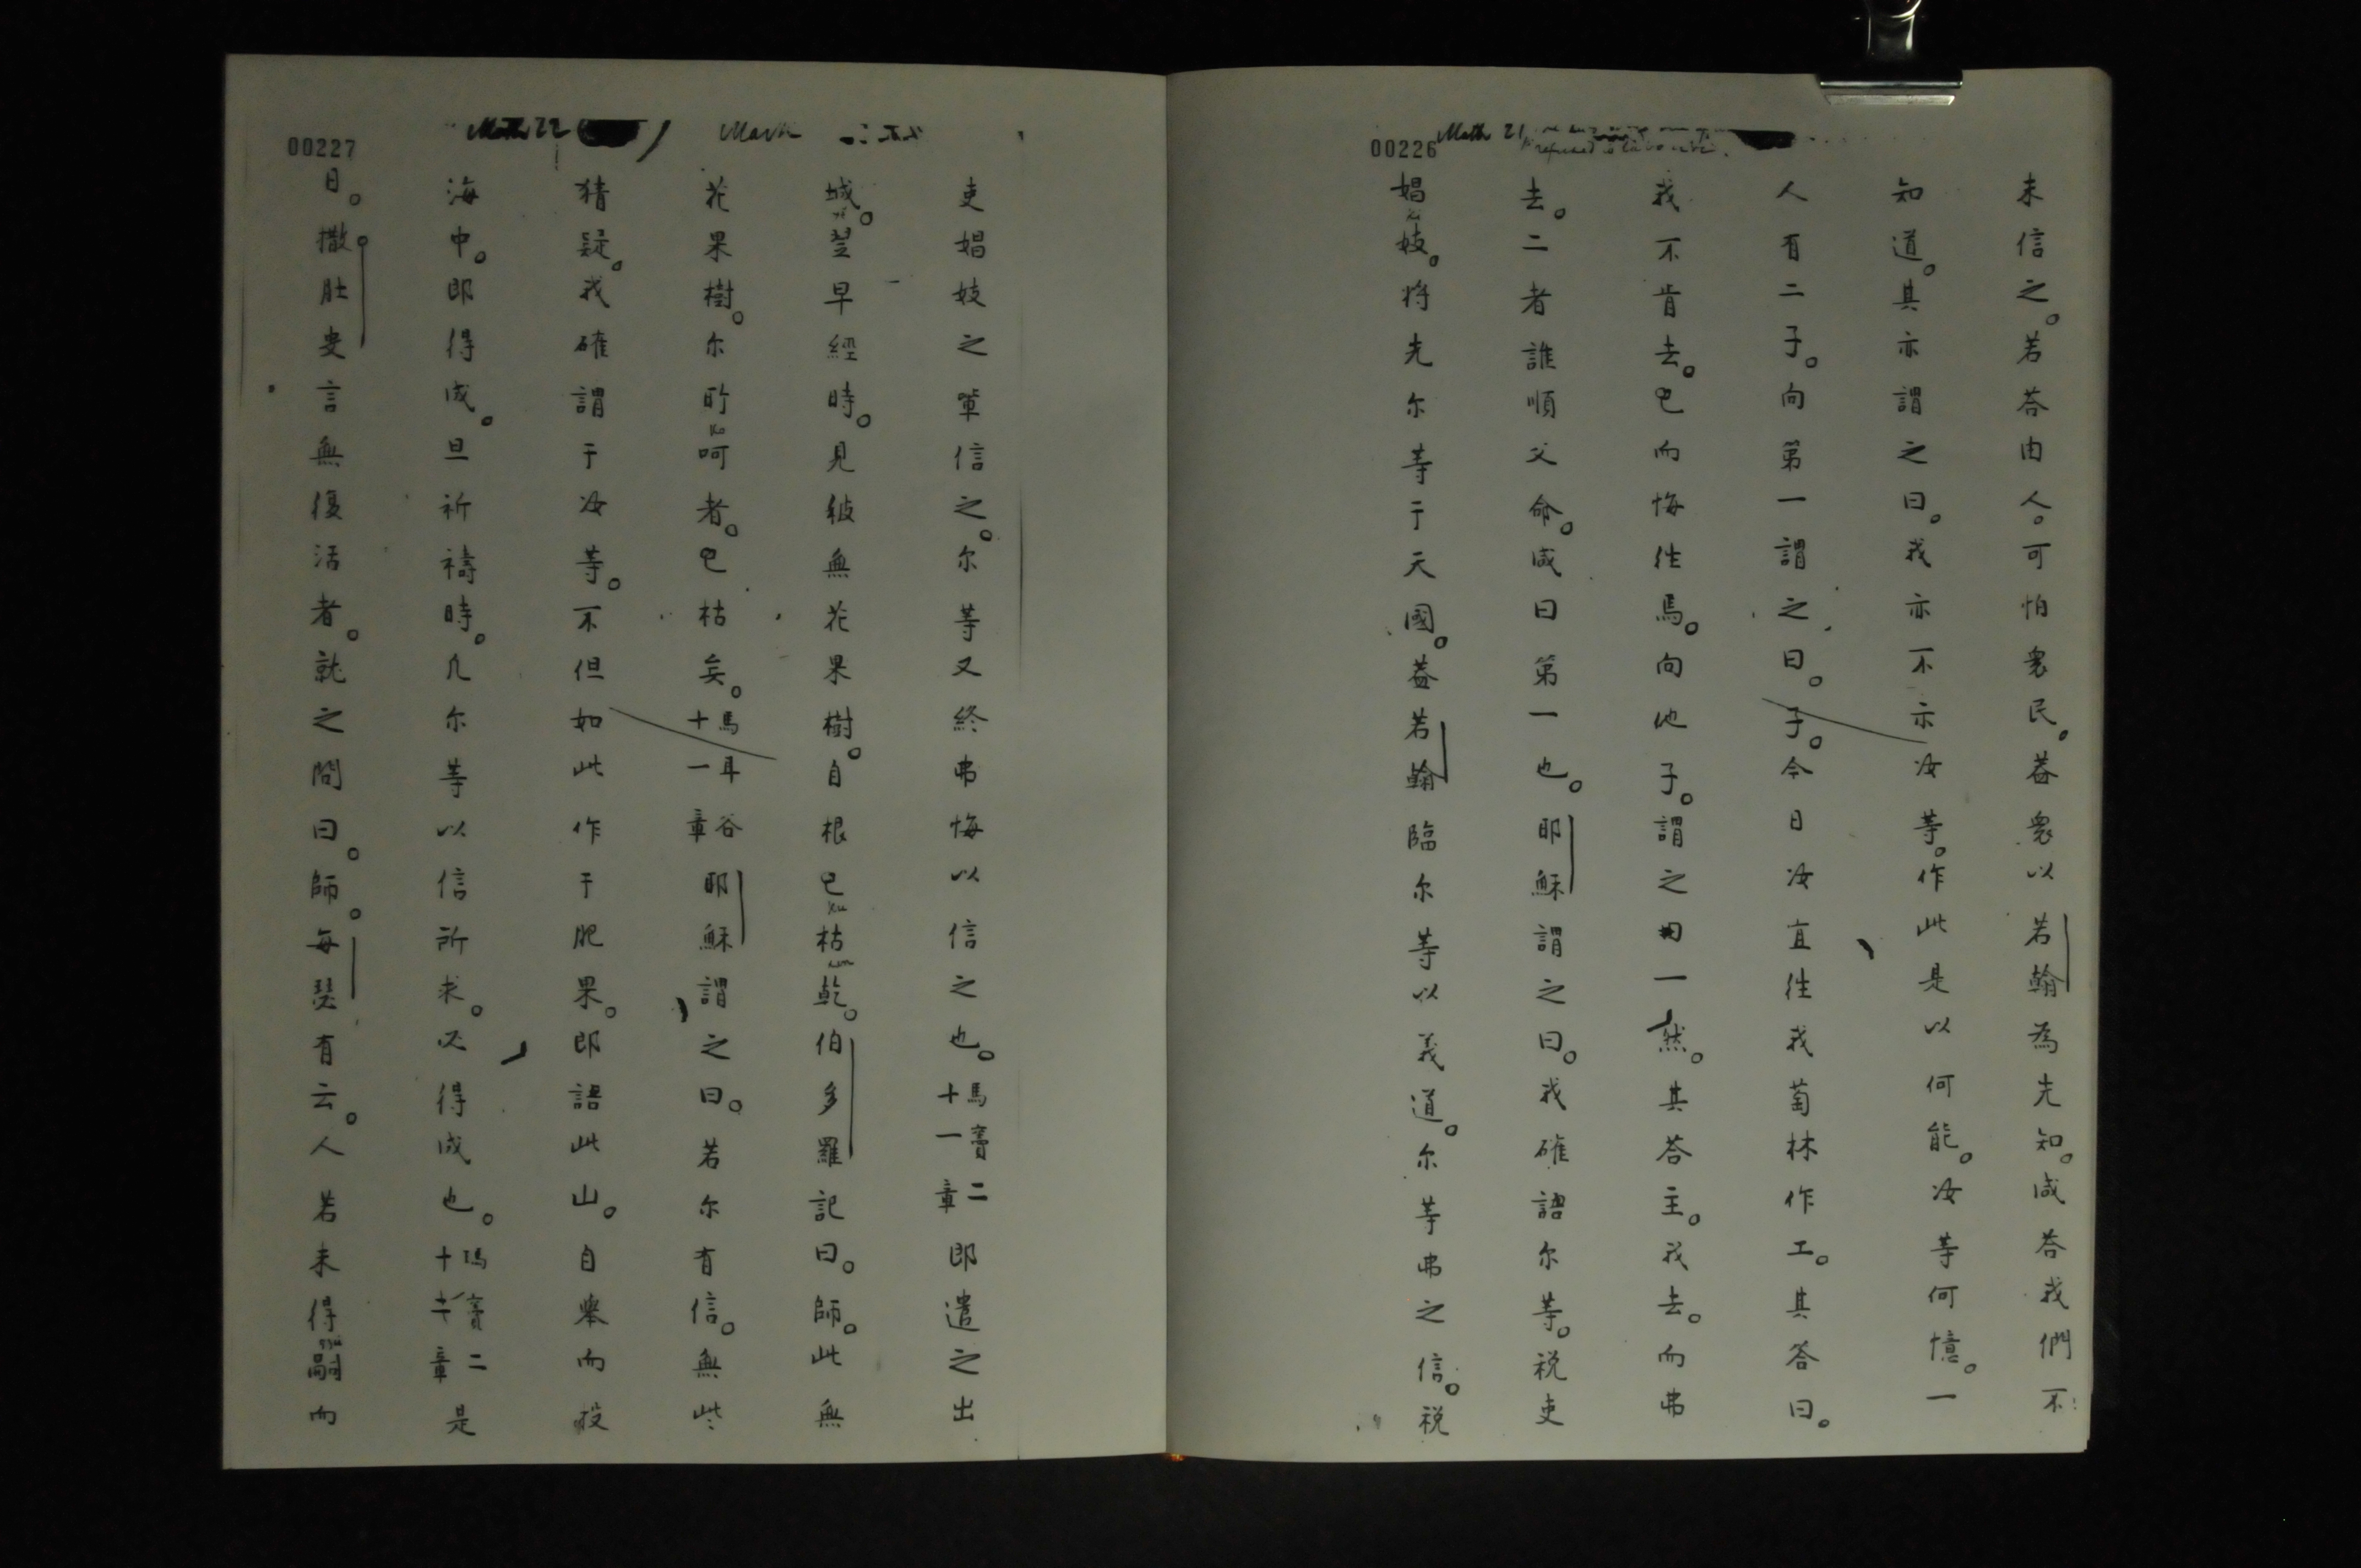 00226
Math 21
未信之。若答由人。可怕衆民。蓋衆以若翰為先知。咸答我們不
知道。其亦謂之曰。我亦不示汝等。作此是以何能。汝等何憶。一
人有二子。向第一謂之曰。子。今日汝宜往我萄林作工。其答曰。
我不肯去。已而悔往焉。向他子。謂之曰一然。其答主。我去。而弗
去。二者誰順父命。咸曰第一也。耶穌謂之曰。我確語尔等。税吏
娼妓。將先尔等于天國。蓋若翰臨尔等以義道。尔等弗之信。税
00227
Math 22
Mark
吏娼妓之輩信之。尔等又終弗悔以信之也。馬竇二十一章即遣之出
城。翌早經時。見彼無花果樹。自根已枯乾。伯多羅記曰。師。此無
花果樹。尔所呵者。已枯矣。馬耳谷十一章耶穌謂之曰。若尔有信。無些
猜疑。我確謂于汝等。不但如此作于肥果。即語此山。自舉而投
海中。即得成。旦祈禱時。凡尔等以信所求。必得成也。瑪竇二十章是
日。撒肚吏言無復活者。就之問曰。師。每瑟有云。人若未得嗣而